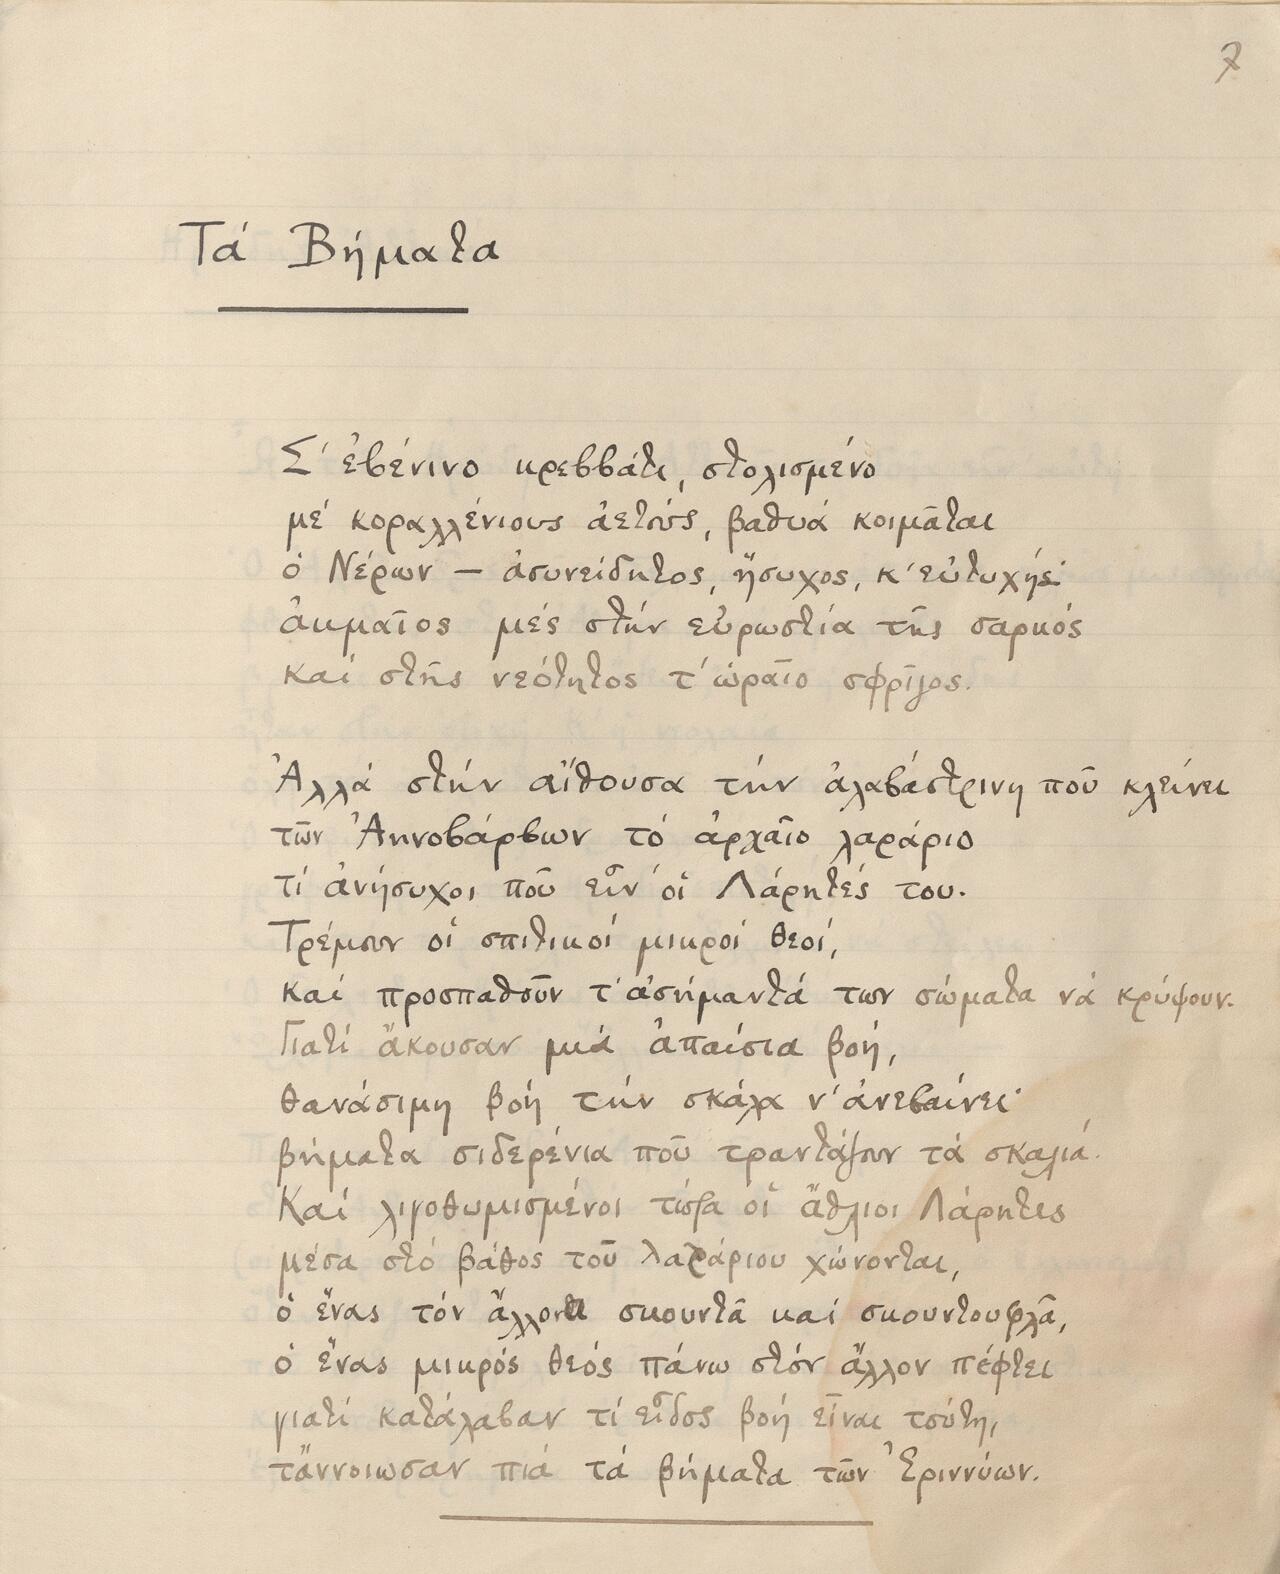 7
Τά Βήματα
Σ' ἐβένινο κρεββάτι, στολισμένο
μέ κοραλλένιους ἀετούς, βαθυά κοιμᾶται
ὁ Νέρων — ἀσυνείδητος, ἥσυχος, κ' εὐτυχής·
ἀκμαῖος μές στήν εὐρωστία τῆς σαρκός
καί στῆς νεότητος τ' ὡραῖο σφρῖγος.
Ἀλλά στήν αἴθουσα τήν ἀλαβάστρινη ποῦ κλείνει
τῶν Ἀηνοβάρβων τό ἀρχαῖο λαράριο
τί ἀνήσυχοι ποῦ εἶν' οἱ Λάρητές του.
Τρέμουν οἱ σπιτικοί μικροί θεοί,
καί προσπαθοῦν τ' ἀσήμαντά των σώματα νά κρύψουν.
Γιατί ἄκουσαν μιά ἀπαίσια βοή,
θανάσιμη βοή τήν σκάλα ν' ἀνεβαίνει·
βήματα σιδερένια ποῦ τραντάζουν τά σκαλιά.
Καί λιγοθυμισμένοι τώρα οἱ ἄθλιοι Λάρητες
μέσα στό βάθος τοῦ λαράριου χώνονται,
ὁ ἕνας τόν ἄλλονα σκουντᾶ καί σκουντουφλᾶ,
ὁ ἕνας μικρός θεός πάνω στόν ἄλλον πέφτει
γιατί κατάλαβαν τί εἶδος βοή εἶναι τούτη,
τἄννοιωσαν πιά τά βήματα τῶν Ἐριννύων.